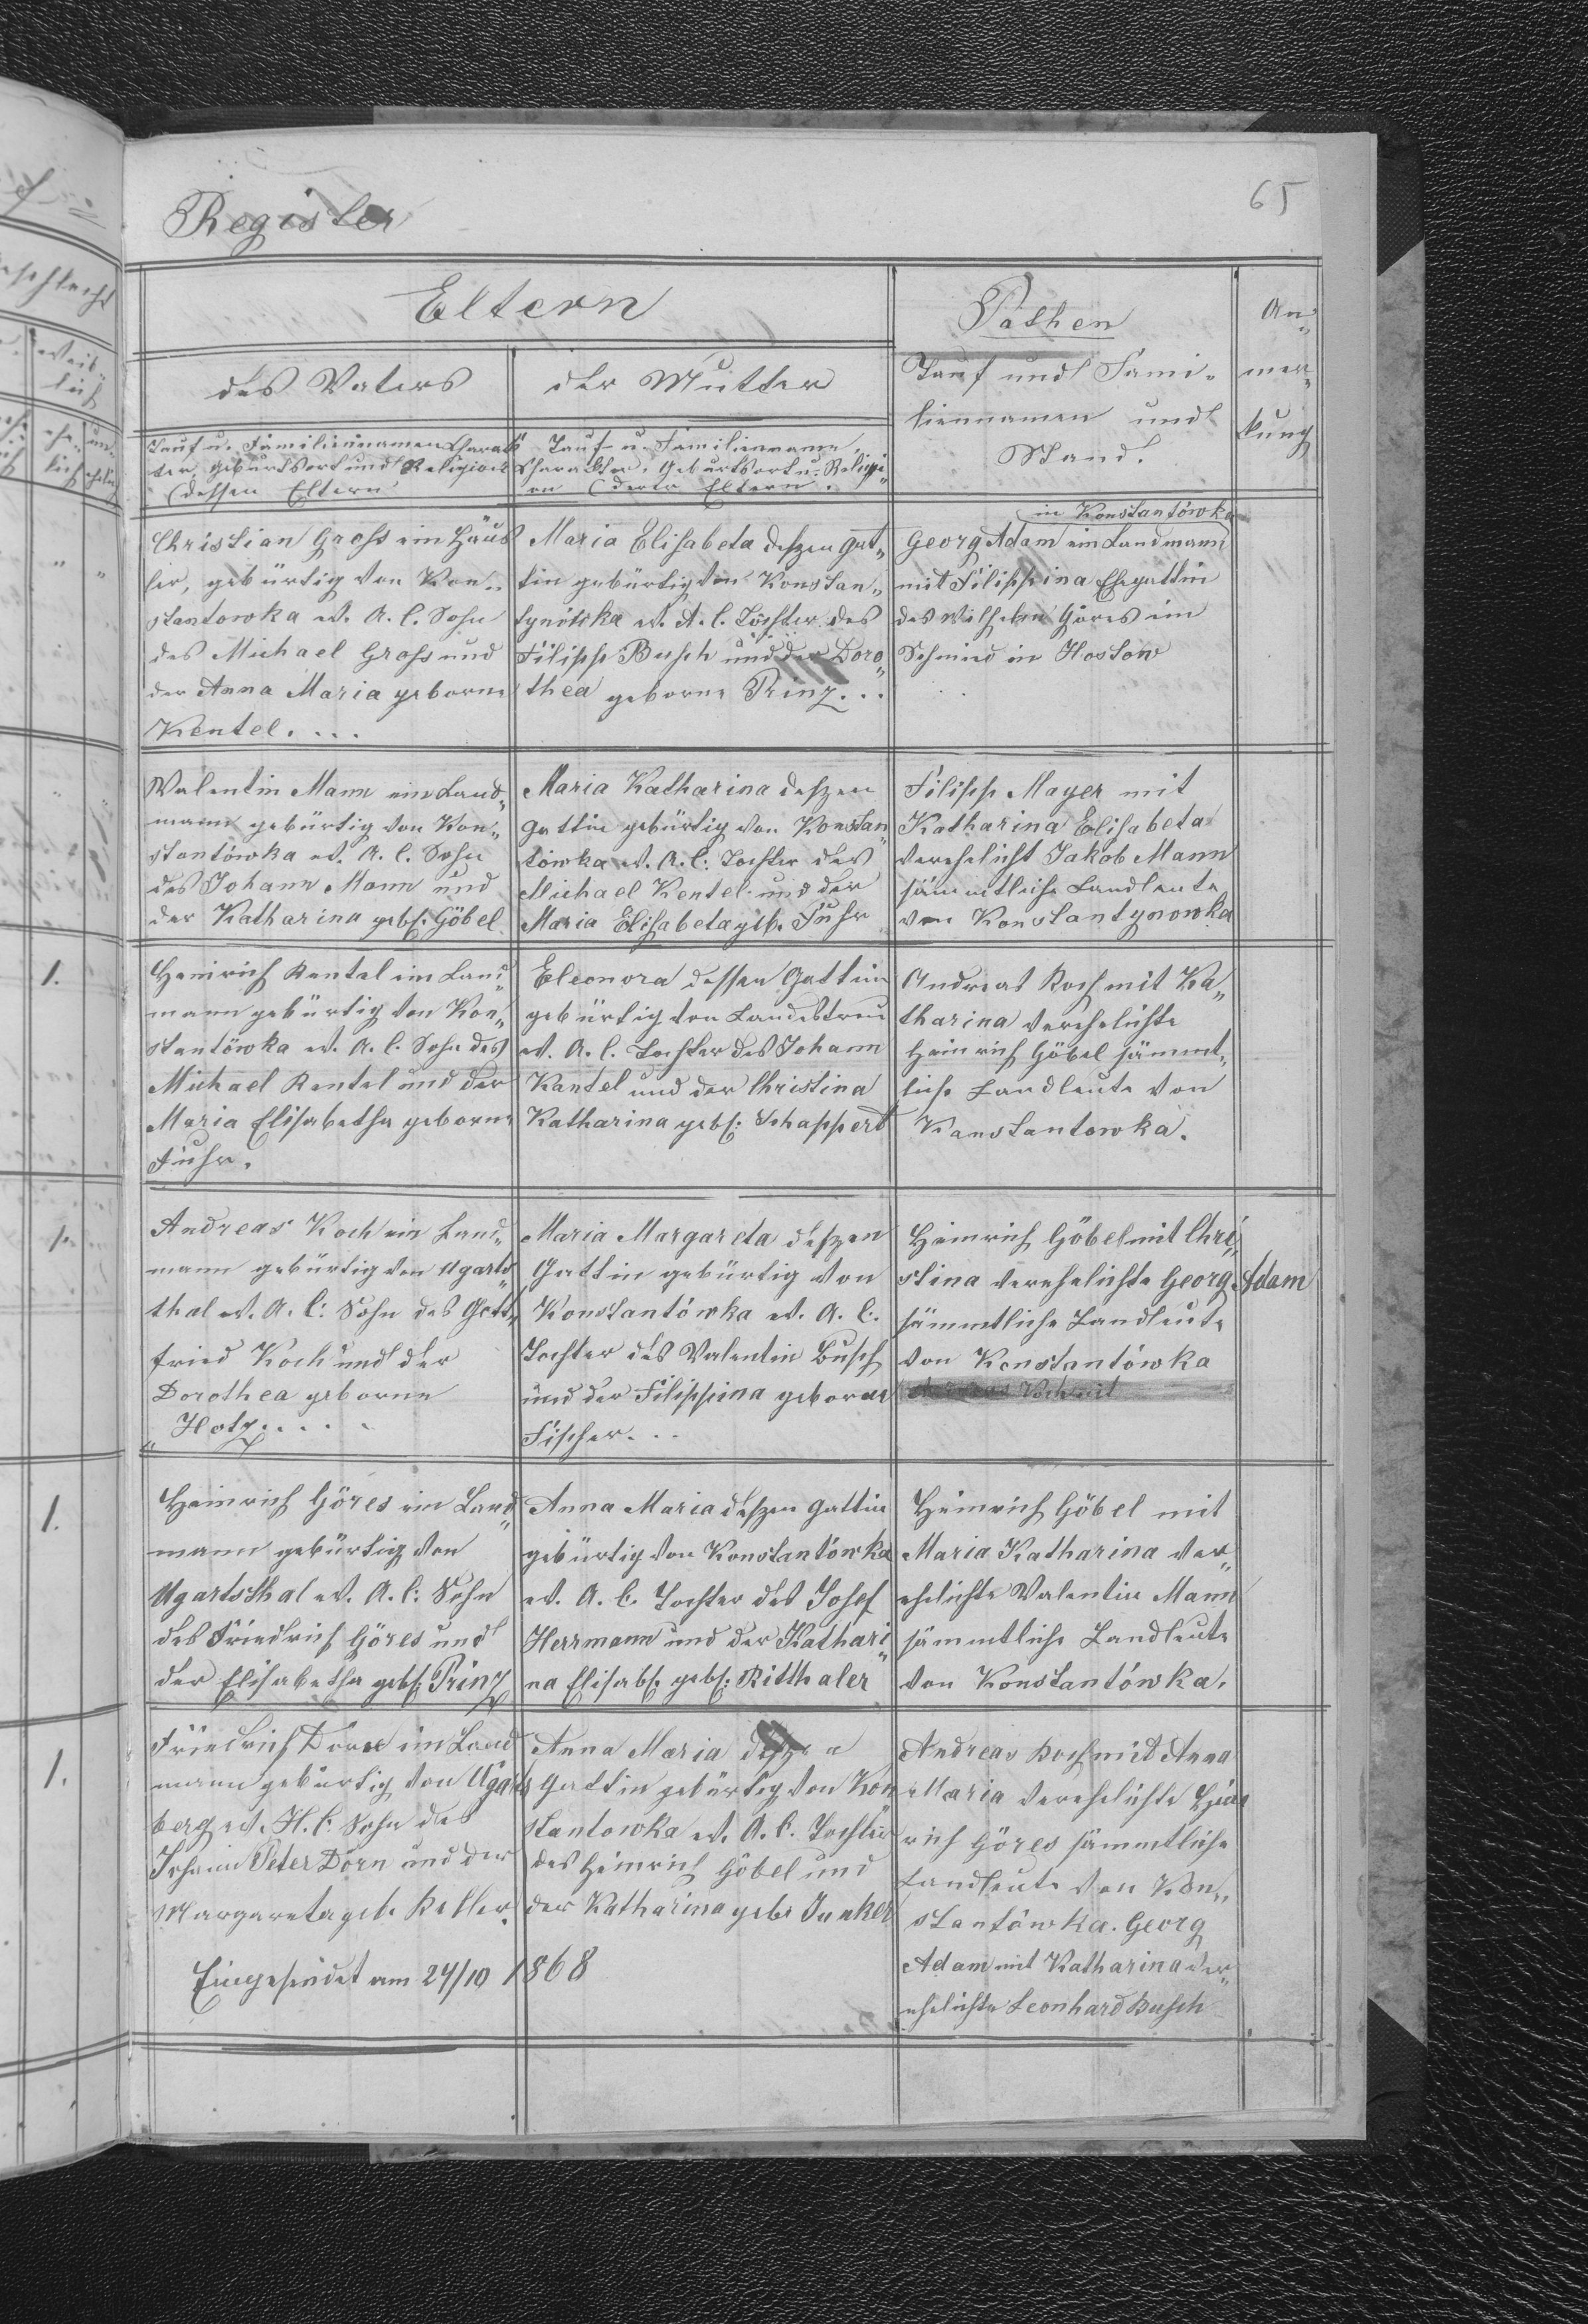 65
Register
Eltern
des Vaters
Tauf u. Familiennamen Charak
ter Geburtsort und Religion
(dessen Eltern
der Mutter
Tauf- u. Familienname
Charakter, Geburtsort u. Religi„
on (derer Eltern.
Pathen
Tauf und Fami-
liennamen und
Stand.
An„
mer„
kung
Christian Gross ein Häus
ler, gebürtig von Kon„
stantowka ev. A. C. Sohn
des Michael Gross und
der Anna Maria geborne
Kentel. . . .
Maria Elisabeta deszen Gat„
tin gebürtig von Konstan„
tynówka ev. A. C. Tochter des
Filipp Busch und der Doro„
thea geborne Prinz. . .
in Konstantówka
Georg Adam ein Landmann
mit Filippina Ehegattin
des Wilhelm Göres ein
Schmied in Hostow
Valentin Mann ein Land„
mann gebürtig von Kon„
stantówka ev. A. C. Sohn
des Johann Mann und
der Katharina geb: Göbel
Maria Katharina deszen
Gattin gebürtig von Konstan„
tówka ev. A. C: Tochter des
Michael Kentel und der
Maria Elisabeta geb. Fuhr
Filipp Mayer mit
Katharina Elisabeta
verehelicht Jakob Mann
sämmtliche Landleute
von Konstantynowka
1.
Heinrich Kentel ein Land„
mann gebürtig von Kon„
stantöwka ev. A. C. Sohn des
Michael Kentel und der
Maria Elisabetha geborne
Fuhr.
Eleonora dessen Gattin
gebürtig von Landestreu
ev. A. C. Tochter des Johann
Kantel und der Christina
Katharina geb: Schappert
Andreas Koch mit Ka„
tharina verehelichte
Heinrich Göbel sämmt„
liche Landleute von
Konstantowka.
1.
Andreas Koch ein Land„
mann gebürtig von Ugarts„
thal ev. A. C: Sohn des Gott„
fried Koch und der
Dorothea geborne
„Hotz. . . . .
Maria Margareta deszen
Gattin gebürtig von
Konstantówka ev. A. C.
Tochter des Valentin Busch
und der Filippina geborne
Fischer. . .
Heinrich Göbel mit Chri„
stina verehelichte Georg Adam
sämmtliche Landleute
von Konstantówka
Andreas Koch mit
1.
Heinrich Göres ein Land„
mann gebürtig von
Ugartsthal ev. A. C: Sohn
des Friedrich Göres und
der Elisabetha geb: Prinz
Anna Maria deszen Gattin
gebürtig von Konstantówka
ev. A. C. Tochter des Josef
Herrmann und der Kathari„
na Elisab. geb: Ritthaler
Heinrich Göbel mit
Maria Katharina ver„
ehelichte Valentin Mann
sämmtliche Landleute
von Konstantówka.
1.
Friedrich Dörn ein Land
mann gebürtig von Ugarts
berg ev. H. C. Sohn des
Johann Peter Dörn und der
Margareta geb. Keller.
Anna Maria deszen
Gattin gebürtig von Kon
stantowka ev. A. C. Tochter
des Heinrich Göbel und
der Katharina geb: Junker
Andreas Koch mit Anna
Maria verehelichte Hein
rich Göres sämmtliche
Landleute von Kon„
stantówka. Georg
Adam mit Katharina ver„
ehelichte Leonhard Busch
Eingesendet am 24/10 1868